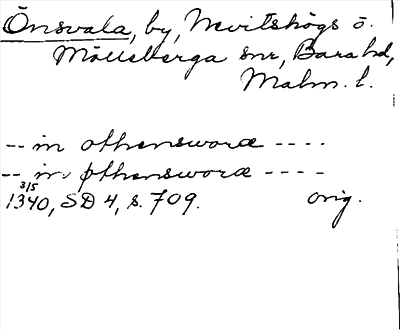 Önsvala, by, Nevitshögs o.
Mölleberga snr, Bara hd,
Malm. l.
-- in othensworæ ----
-- in othensworæ ----
3/5
1340, SD 4, s. 709. orig.